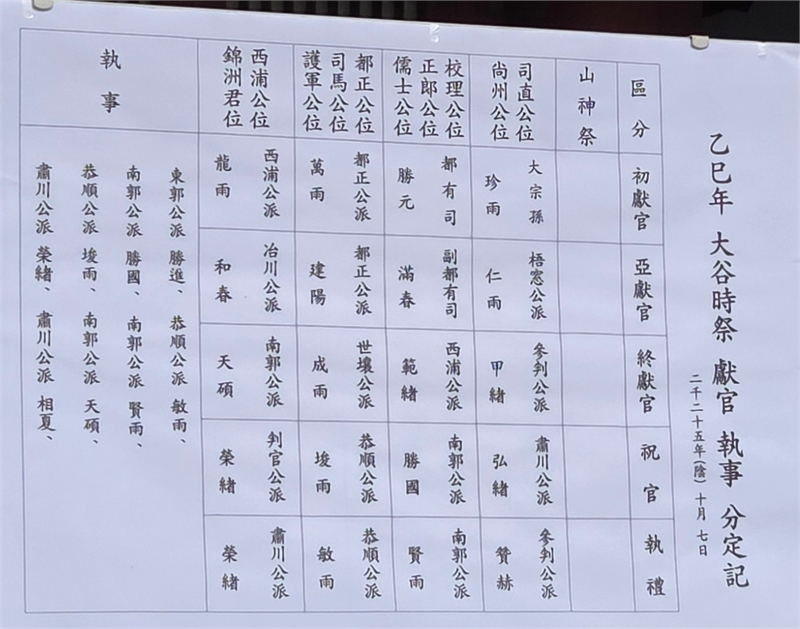 乙巳年 大谷時祭 獻官 執事 分定記
二千二十五年(陰) 十月 七日
區分
初獻官
亞獻官
終獻官
祝官
執禮
山神祭
司直公位
尙州公位
大宗孫
珍雨
梧窓公派
仁雨
參判公派
甲緖
肅川公派
弘緖
參判公派
贊赫
校理公位
正郎公位
儒士公位
都有司
勝元
副都有司
滿春
西浦公派
範緖
南郭公派
勝國
南郭公派
賢雨
都正公位
司馬公位
護軍公位
都正公派
萬雨
都正公派
建陽
世壤公派
成雨
恭順公派
埈雨
恭順公派
敏雨
西浦公位
錦洲君位
西浦公派
龍雨
冶川公派
和春
南郭公派
天碩
判官公派
榮緖
肅川公派
榮緖
執事
東郭公派 勝進、 恭順公派 敏雨、
南郭公派 勝國、 南郭公派 賢雨、
恭順公派 埈雨、 南郭公派 天碩、
肅川公派 榮緖、 肅川公派 相夏、